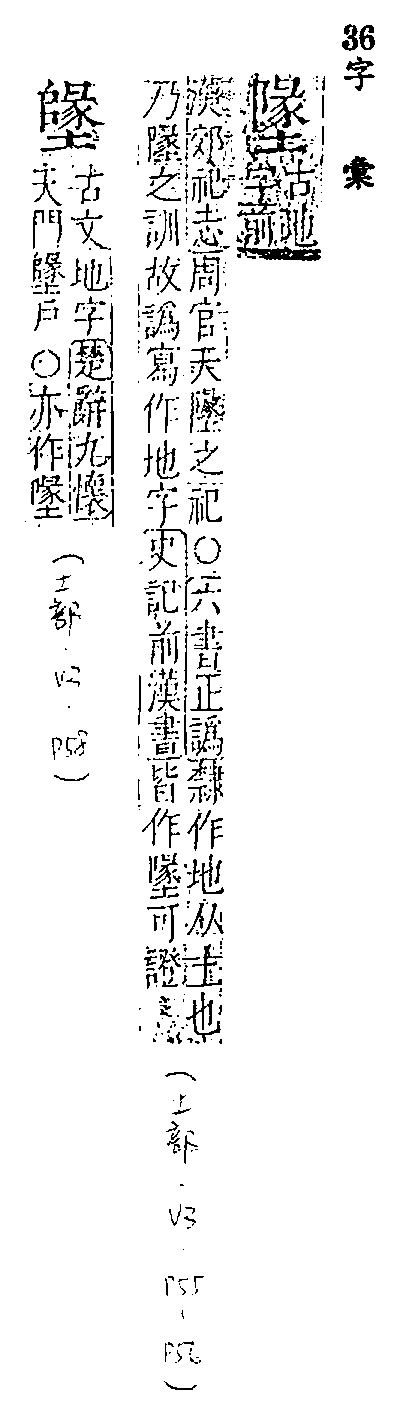 36字 彙
墬
古地
字前
漢郊祀志周官天墬之祀○六書正譌隸作地从土也
乃墬之訓故譌寫作地字史記前漢書皆作墬可證
(土部.V3.P55-P56)
古文地字楚辭九懷
天門 戶○亦作墬
(土部.V3.P58)